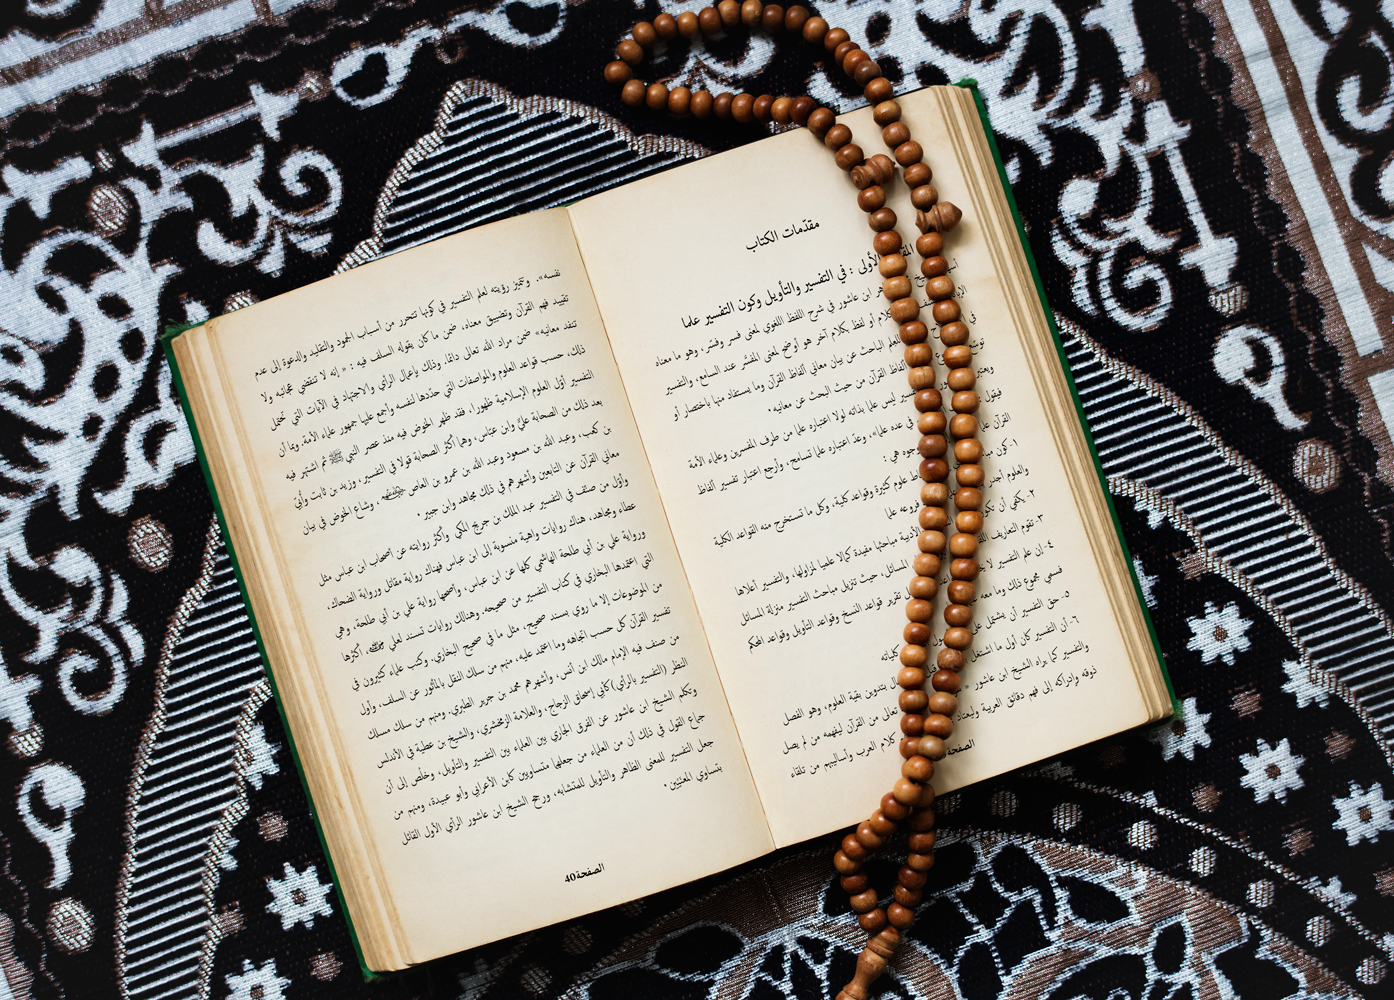 مقدّمات الكتاب
الأولى : في التفسير والتأويل وكون التفسير علما
ابن عاشور في شرح اللفظ اللغوي لمعنى فسر وفسّر، وهو ما معناه
كلام أو لفظ بكلام آخر هو أوضح لمعنى المفسَّر عند السامع، والتفسير
العلم الباحث عن بيان معاني ألفاظ القرآن وما يستفاد منها باختصار أو
ألفاظ القرآن من حيث البحث عن معانيه.
ليس علما بذاته لولا اعتباره علما من طرف المفسرين وعلماء الأمة
فيقول في عده علما»، وعدّ اعتباره علما تسامح، وأرجع اعتبار تفسير ألفاظ
القرآن وجوه هي :
١- كون علوم كثيرة وقواعد كلية، وكل ما تستخرج منه القواعد الكلية
والعلوم فروعه علما
٢- يكفي أن يكون الأدبية مباحثها مفيدة كمالا علميا لمزاولها، والتفسير أعلاها
٣- تقوم التعاريف المسائل، حيث تنزيل مباحث التفسير منزلة المسائل
٤- إن علم التفسير لا تقرير قواعد النسخ وقواعد التأويل وقواعد المحكم
فسمي مجموع ذلك وما معه
٥- حق التفسير أن يشتمل على أصول كلياته
٦- أن التفسير كان أول ما اشتغل بتدوين بقية العلوم، وهو الفصل
والتفسير كما يراه الشيخ ابن عاشور « تعالى من القرآن ليفهمه من لم يصل
ذوقه وإدراكه إلى فهم دقائق العربية كلام العرب وأساليبهم من تلقاء
الصفحة
نفسه». وتتميز رؤيته لعلم التفسير في كونها تتحرر من أسباب الجمود والتقليد والدعوة إلى عدم
تقييد فهم القرآن وتضييق معناه، ضمن ما كان يقوله السلف فيه : « إنه لا تنقضي عجائبه ولا
تنفد معانيه» ضمن مراد الله تعالى دائما، وذلك بإعمال الرأي والاجتهاد في الآيات التي تحتمل
ذلك، حسب قواعد العلوم والمواصفات التي حددها لنفسه واجمع عليها جمهور علماء الأمة. وبما أن
التفسير أوّل العلوم الإسلامية ظهورا، فقد ظهر الخوض فيه منذ عصر النبي ﷺ ثم اشتهر فيه
بعد ذلك من الصحابة عليّ وابن عبّاس، وهما أكثر الصحابة قولا في التفسير، وزيد بن ثابت وأبيّ
بن كعب، وعبد الله بن مسعود وعبد الله بن عمرو بن العاص ، وشاع الخوض في بيان
معاني القرآن عن التابعين وأشهرهم في ذلك مجاهد وابن جبير .
وأوّل من صنّف في التفسير عبد الملك بن جريج المكي وأكثر روايته عن اصحاب ابن عباس مثل
عطاء ومجاهد، هناك روايات واهية منسوبة إلى ابن عباس فهناك رواية مقاتل ورواية الضحاك.
ورواية علي بن أبي طلحة الهاشمي كلها عن ابن عباس، وأصحها رواية علي بن أبي طلحة، وهي
التي اعتمدها البخاري في كتاب التفسير من صحيحه. وهنالك روايات تسند لعلي ، أكثرها
من الموضوعات إلا ما روي بسند صحيح، مثل ما في صحيح البخاري. وكتب علماء كثيرون في
تفسير القرآن كل حسب اتجاهه وما اعتمد عليه، منهم من سلك النقل بالمأثور عن السلف. وأول
من صنف فيه الإمام مالك ابن أنس، وأشهرهم محمد بن جرير الطبري. ومنهم من سلك مسلك
النظر (التفسير بالرأي)كأبي إسحاق الزجاج، والعلامة الزمخشري، والشيخ بن عطية في الأندلس
وتكلم الشيخ ابن عاشور عن الفرق الجاري بين العلماء بين التفسير والتأويل، وخلص إلى أن
جماع القول في ذلك أن من العلماء من جعلهما متساويين كابن الأعرابي وأبو عبيدة، ومنهم من
جعل التفسير للمعنى الظاهر والتأويل للمتشابه، ورجح الشيخ ابن عاشور الرأي الأول القائل
بتساوي المعنيين .
الصفحة40